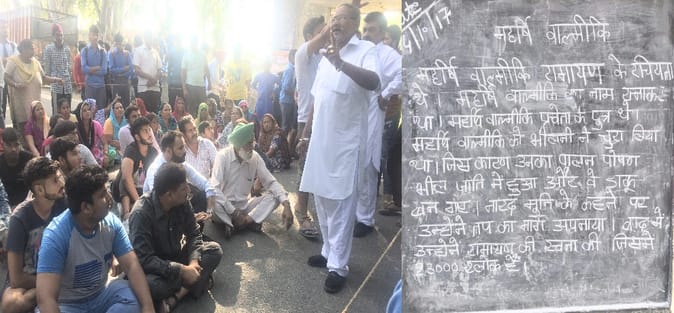 महर्षि वाल्मीकि
महर्षि वाल्मीकि रामायण के रचियता
थे। महर्षि वाल्मीकि का नाम रत्नाकर
था। महर्षि वाल्मीकि प्रचेता के पुत्र थे।
महर्षि वाल्मीकि को भीलनी ने चुरा लिया
था। जिस कारण उनका पालन पोषण
भील जाति में हुआ और वे डाकू
बन गए। नारद मुनि के कहने पर
उन्होने तप का मार्ग अपनाया। बाद में
उन्होने रामायण की रचना की जिसमें
23000 श्लोक है।